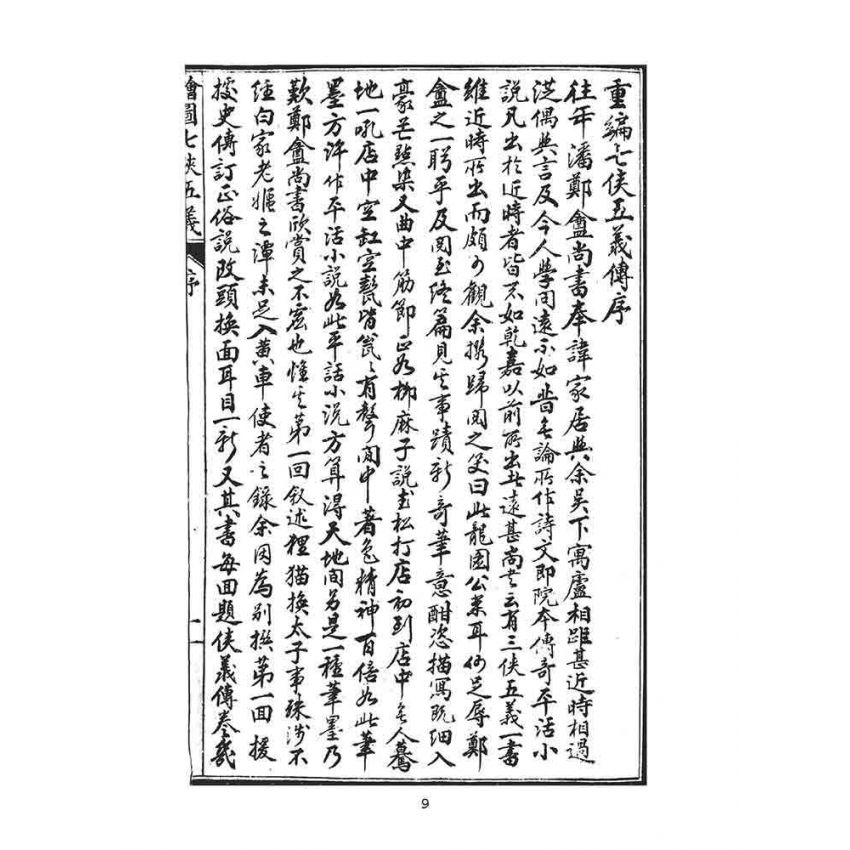 重編七俠五義傳序
往年潘鄭盦尚書奉諱家居與余吳下寓廬相距甚近時相過
從偶與言及今人學問遠不如昔無論所作詩文即院本傳奇平活小
說凡出於近時者皆不如乾嘉以前所出者遠甚尚書云有三俠五義一書
雖近時所出而頗可觀余攜歸閱之笑曰此龍圖公案耳何足辱鄭
盦之一盼乎及閱至終篇見其事蹟新奇筆意酣恣描寫既細入
豪芒點染又曲中筋節正如柳麻子說武松打店初到店中無人驀
地一吼店中空缸空甏皆瓮瓮有聲閒中著色精神百倍如此筆
墨方許作平活小說如此平話小說方算得天地間另是一種筆墨乃
歎鄭盦尚書欣賞之不虛也惟其第一回叙述狸猫換太子事殊涉不
經白家老嫗之譚未足入黃車使者之錄余因為別撰第一回援
據史傳訂正俗說改頭換面耳目一新又其書每回題俠義傳卷幾
繪圖七俠五義 序 二
9